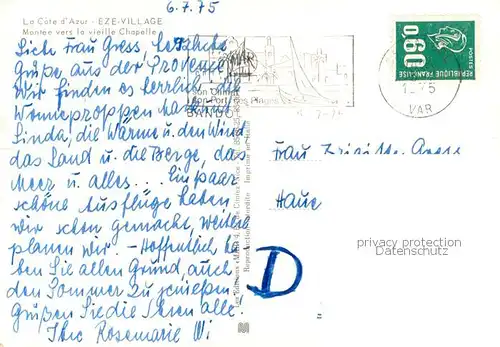 6.7.75
La Côte d'Azur - EZE-VILLAGE
Montée vers la vieille Chapelle
Liebe Frau Gress, herzliche
Grüße aus der Provence!
Wir finden es herrlich, die
Wonneproppen
Linda, die Wärme u. den Wind
das Land u. die Berge, das
Meer u. alles... Ein paar
schöne Ausflüge haben
wir schon gemacht, weitere
planen wir. - Hoffentlich ha-
ben Sie allen Grund, auch
den Sommer zu genießen.
Grüßen Sie die Ihren alle!
Ihre Rosemarie Wi
son Climat
son Port, ses Plages
BANDOL
VAR
0,60
POSTES
REPUBLIQUE FRANÇAISE
Frau Brigitte Gress
Haue
D
privacy protection
Datenschutz